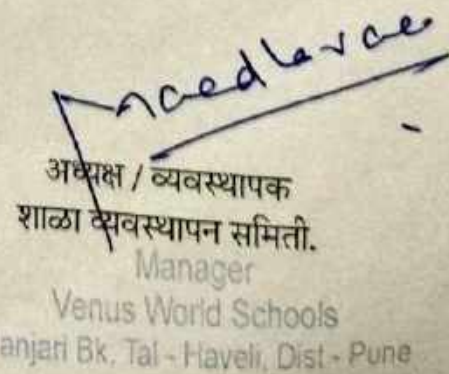 अध्यक्ष / व्यवस्थापक
शाळा व्यवस्थापन समिती.
Manager
Venus World Schools
anjari Bk, Tal - Haveli, Dist - Pune